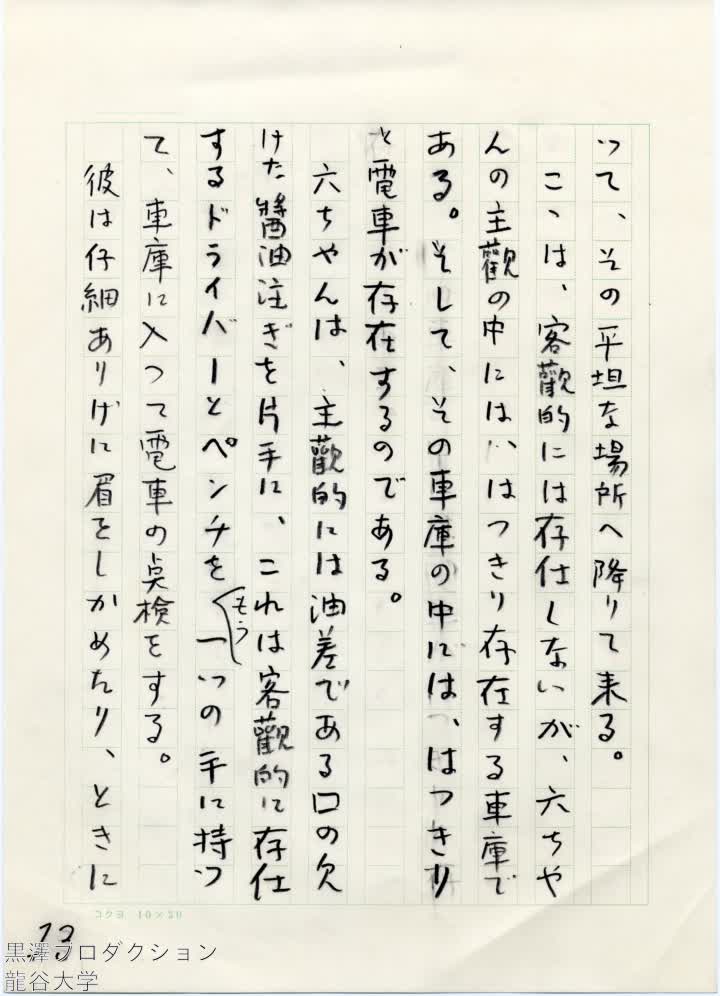 って、その平坦な場所へ降りて来る。
こゝは、客觀的には存在しないが、六ちや
んの主觀の中には、はつきり存在する車庫で
ある。そして、その車庫の中には、はつきり
と電車が存在するのである。
六ちやんは、主觀的には油差である口の欠
けた醬油注ぎを片手に、これは客觀的に存在
するドライバーとペンチをもう一つの手に持つ
て、車庫に入つて電車の点検をする。
彼は仔細ありげに眉をしかめたり、ときに
コクヨ 10×20
13
黒澤プロダクション
龍谷大学